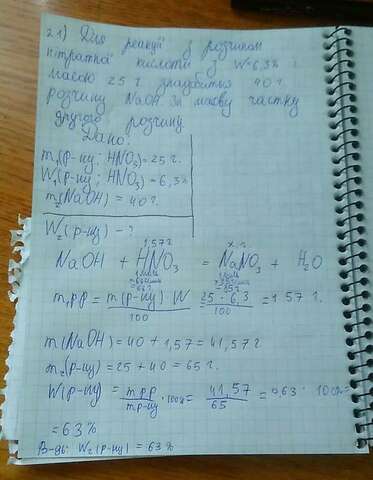 21) Для реакції з розчином
нітратної кислоти з W=6,3% і
масою 25 г знадобиться 40 г
розчину NaOH. За масову частку
другого розчину
Дано:
m₁(р-ну; HNO₃)=25г.
W₁(р-ну; HNO₃)=6,3%
m₂(NaOH) = 40г.
W₂(р-ну) - ?
1,57г x г
NaOH + HNO₃ = NaNO₃ + H₂O
1 моль 1 моль
m₁рр = m(р-ну) W / 100 = 25 · 6,3 / 100 = 1 57 г.
m(NaOH) = 40 + 1,57 = 41,57г
m₂(р-ну) = 25 + 40 = 65г.
W(р-ну) = mрр / mр-ну · 100% = 41,57 / 65 = 0,63 · 100%=
= 63%
В-дь: W₂(р-ну) = 63%